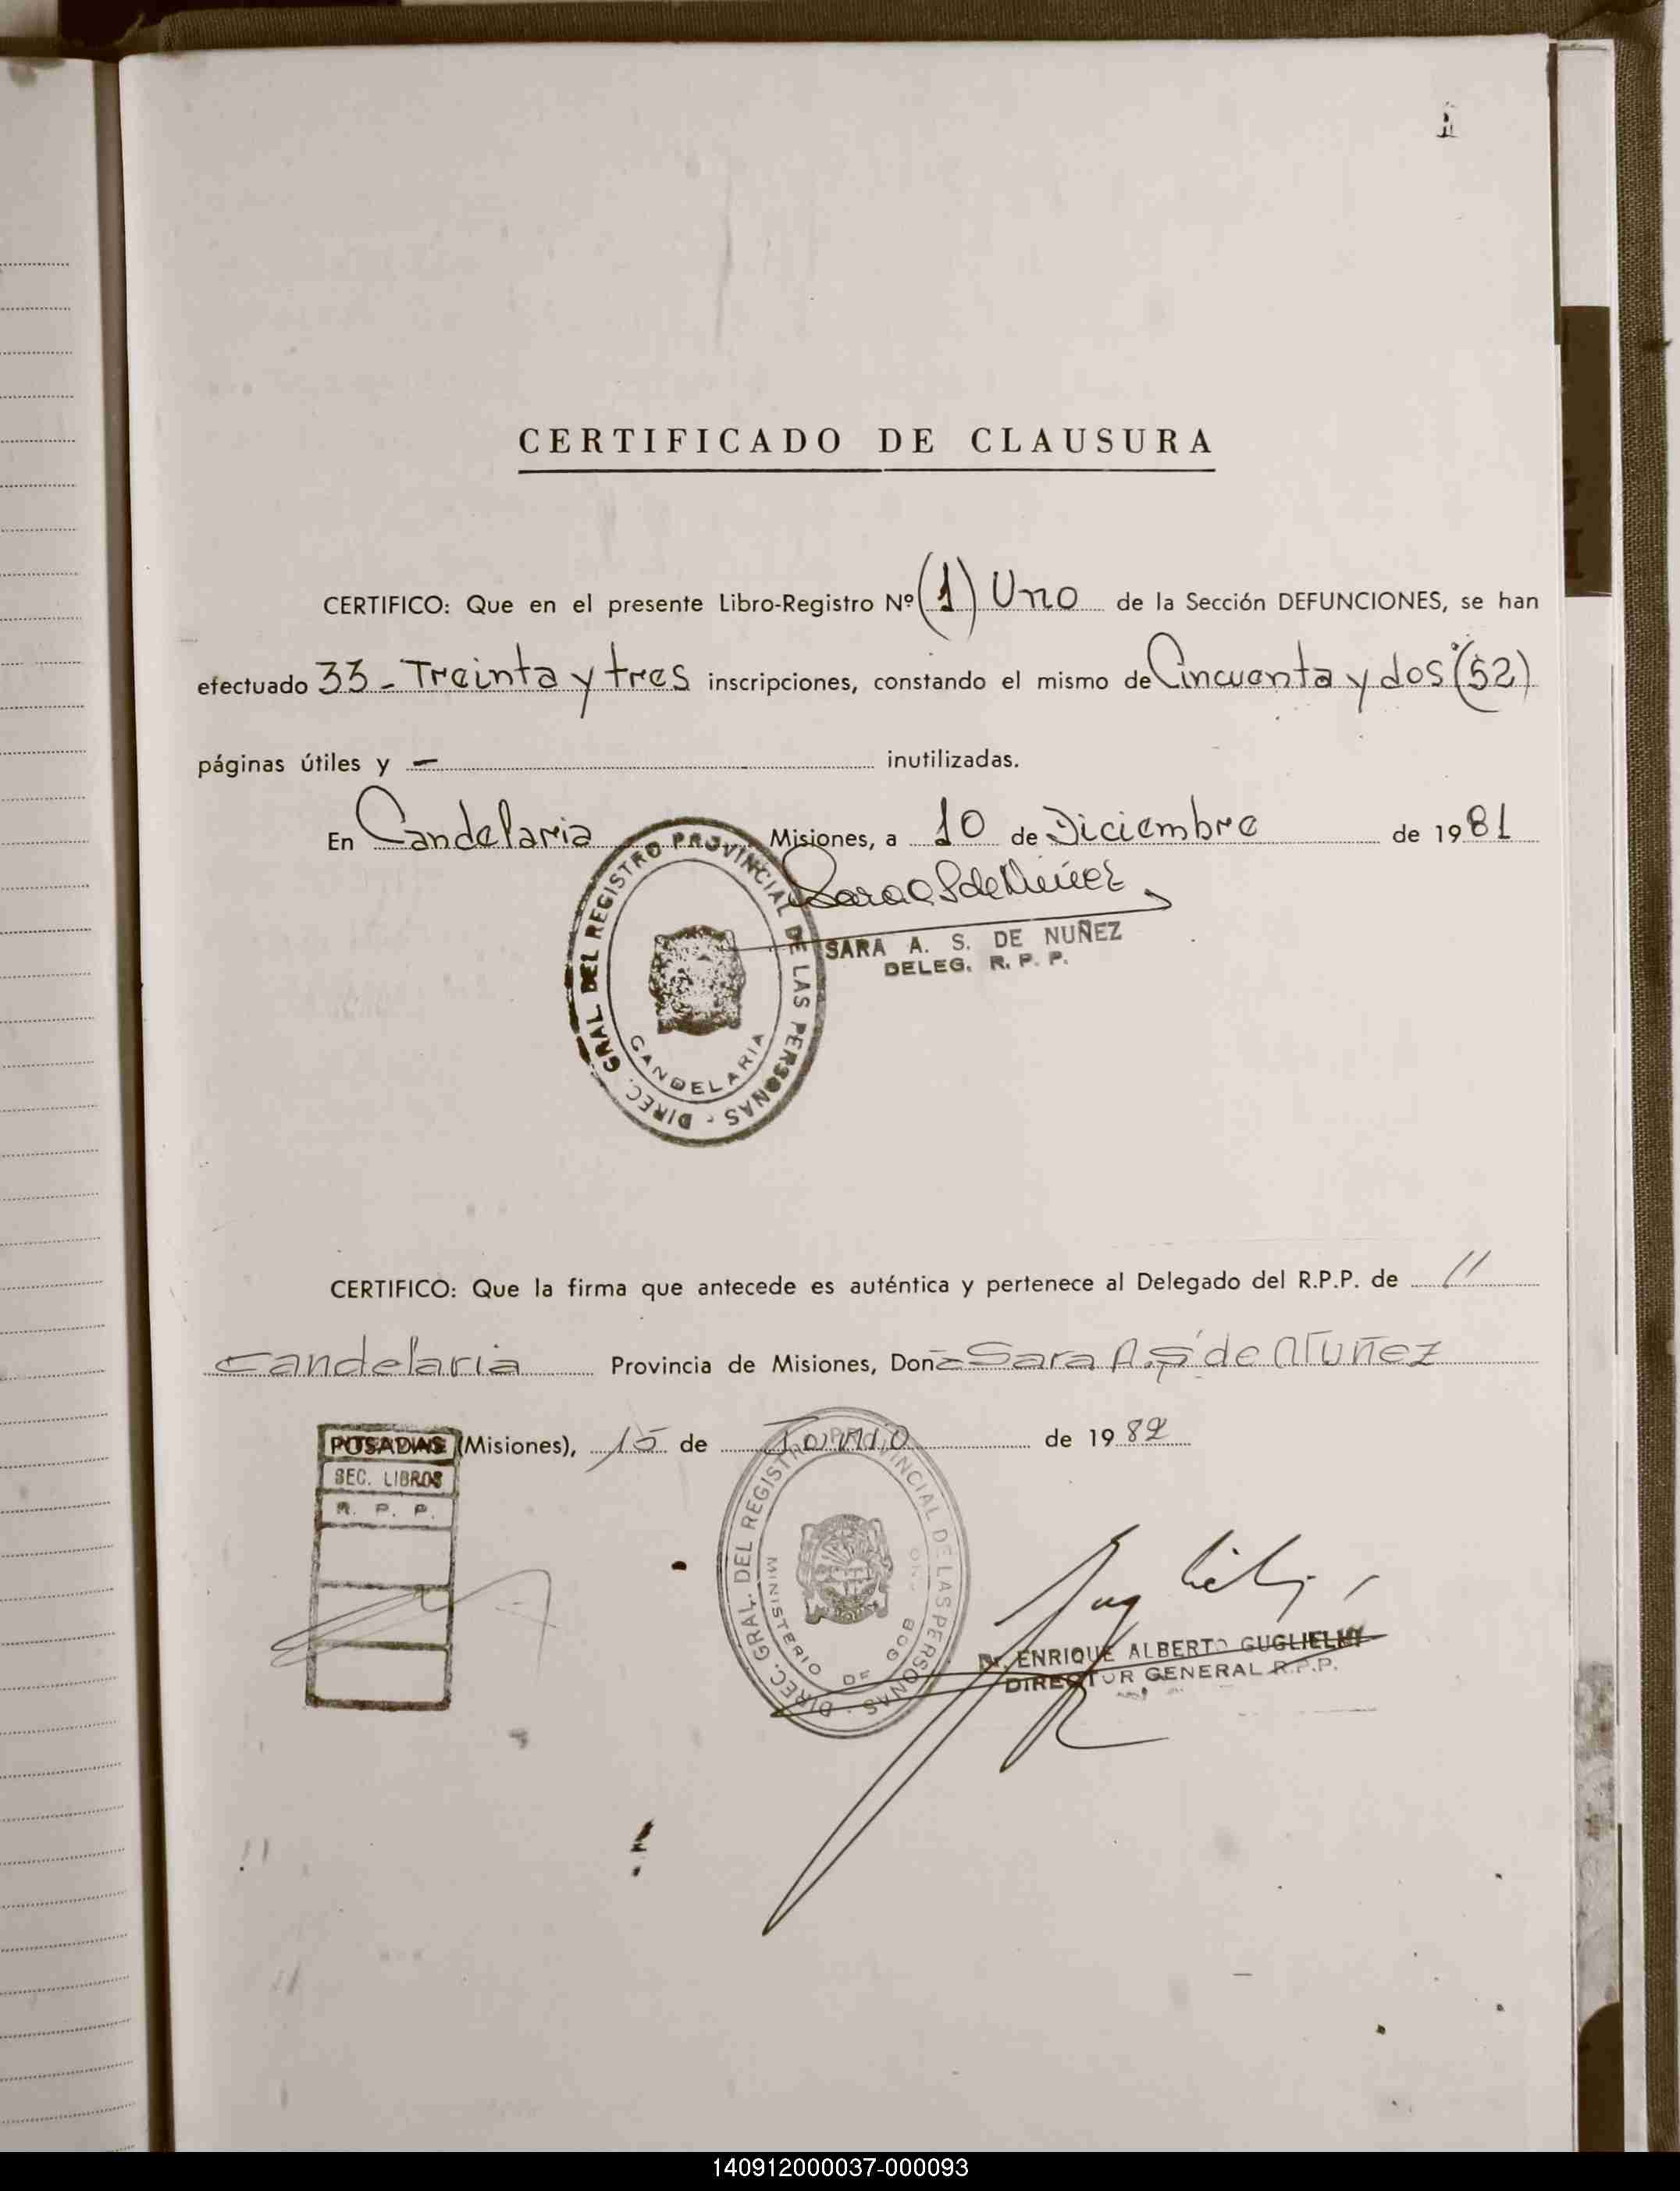 CERTIFICADO DE CLAUSURA
CERTIFICO: Que en el presente Libro-Registro Nº (1) Uno de la Sección DEFUNCIONES, se han
efectuado 33 - Treinta y tres inscripciones, constando el mismo de Cincuenta y dos (52)
páginas útiles y — inutilizadas.
En Candelaria Misiones, a 10 de Diciembre de 1981
Sara A S de Núñez
SARA A. S. DE NUÑEZ
DELEG. R. P. P.
DIREC. GRAL. DEL REGISTRO PROVINCIAL DE LAS PERSONAS -
CANDELARIA
CERTIFICO: Que la firma que antecede es auténtica y pertenece al Delegado del R.P.P. de //
Candelaria Provincia de Misiones, Doña Sara A. S. de Nuñez
POSADAS (Misiones), 15 de de 1982
SEC. LIBROS
R. P. P.
DIREC. GRAL. DEL REGISTRO PROVINCIAL DE LAS PERSONAS -
MINISTERIO DE GOB
Dr. ENRIQUE ALBERTO GUGLIELMI
DIRECTOR GENERAL R.P.P.
140912000037-000093